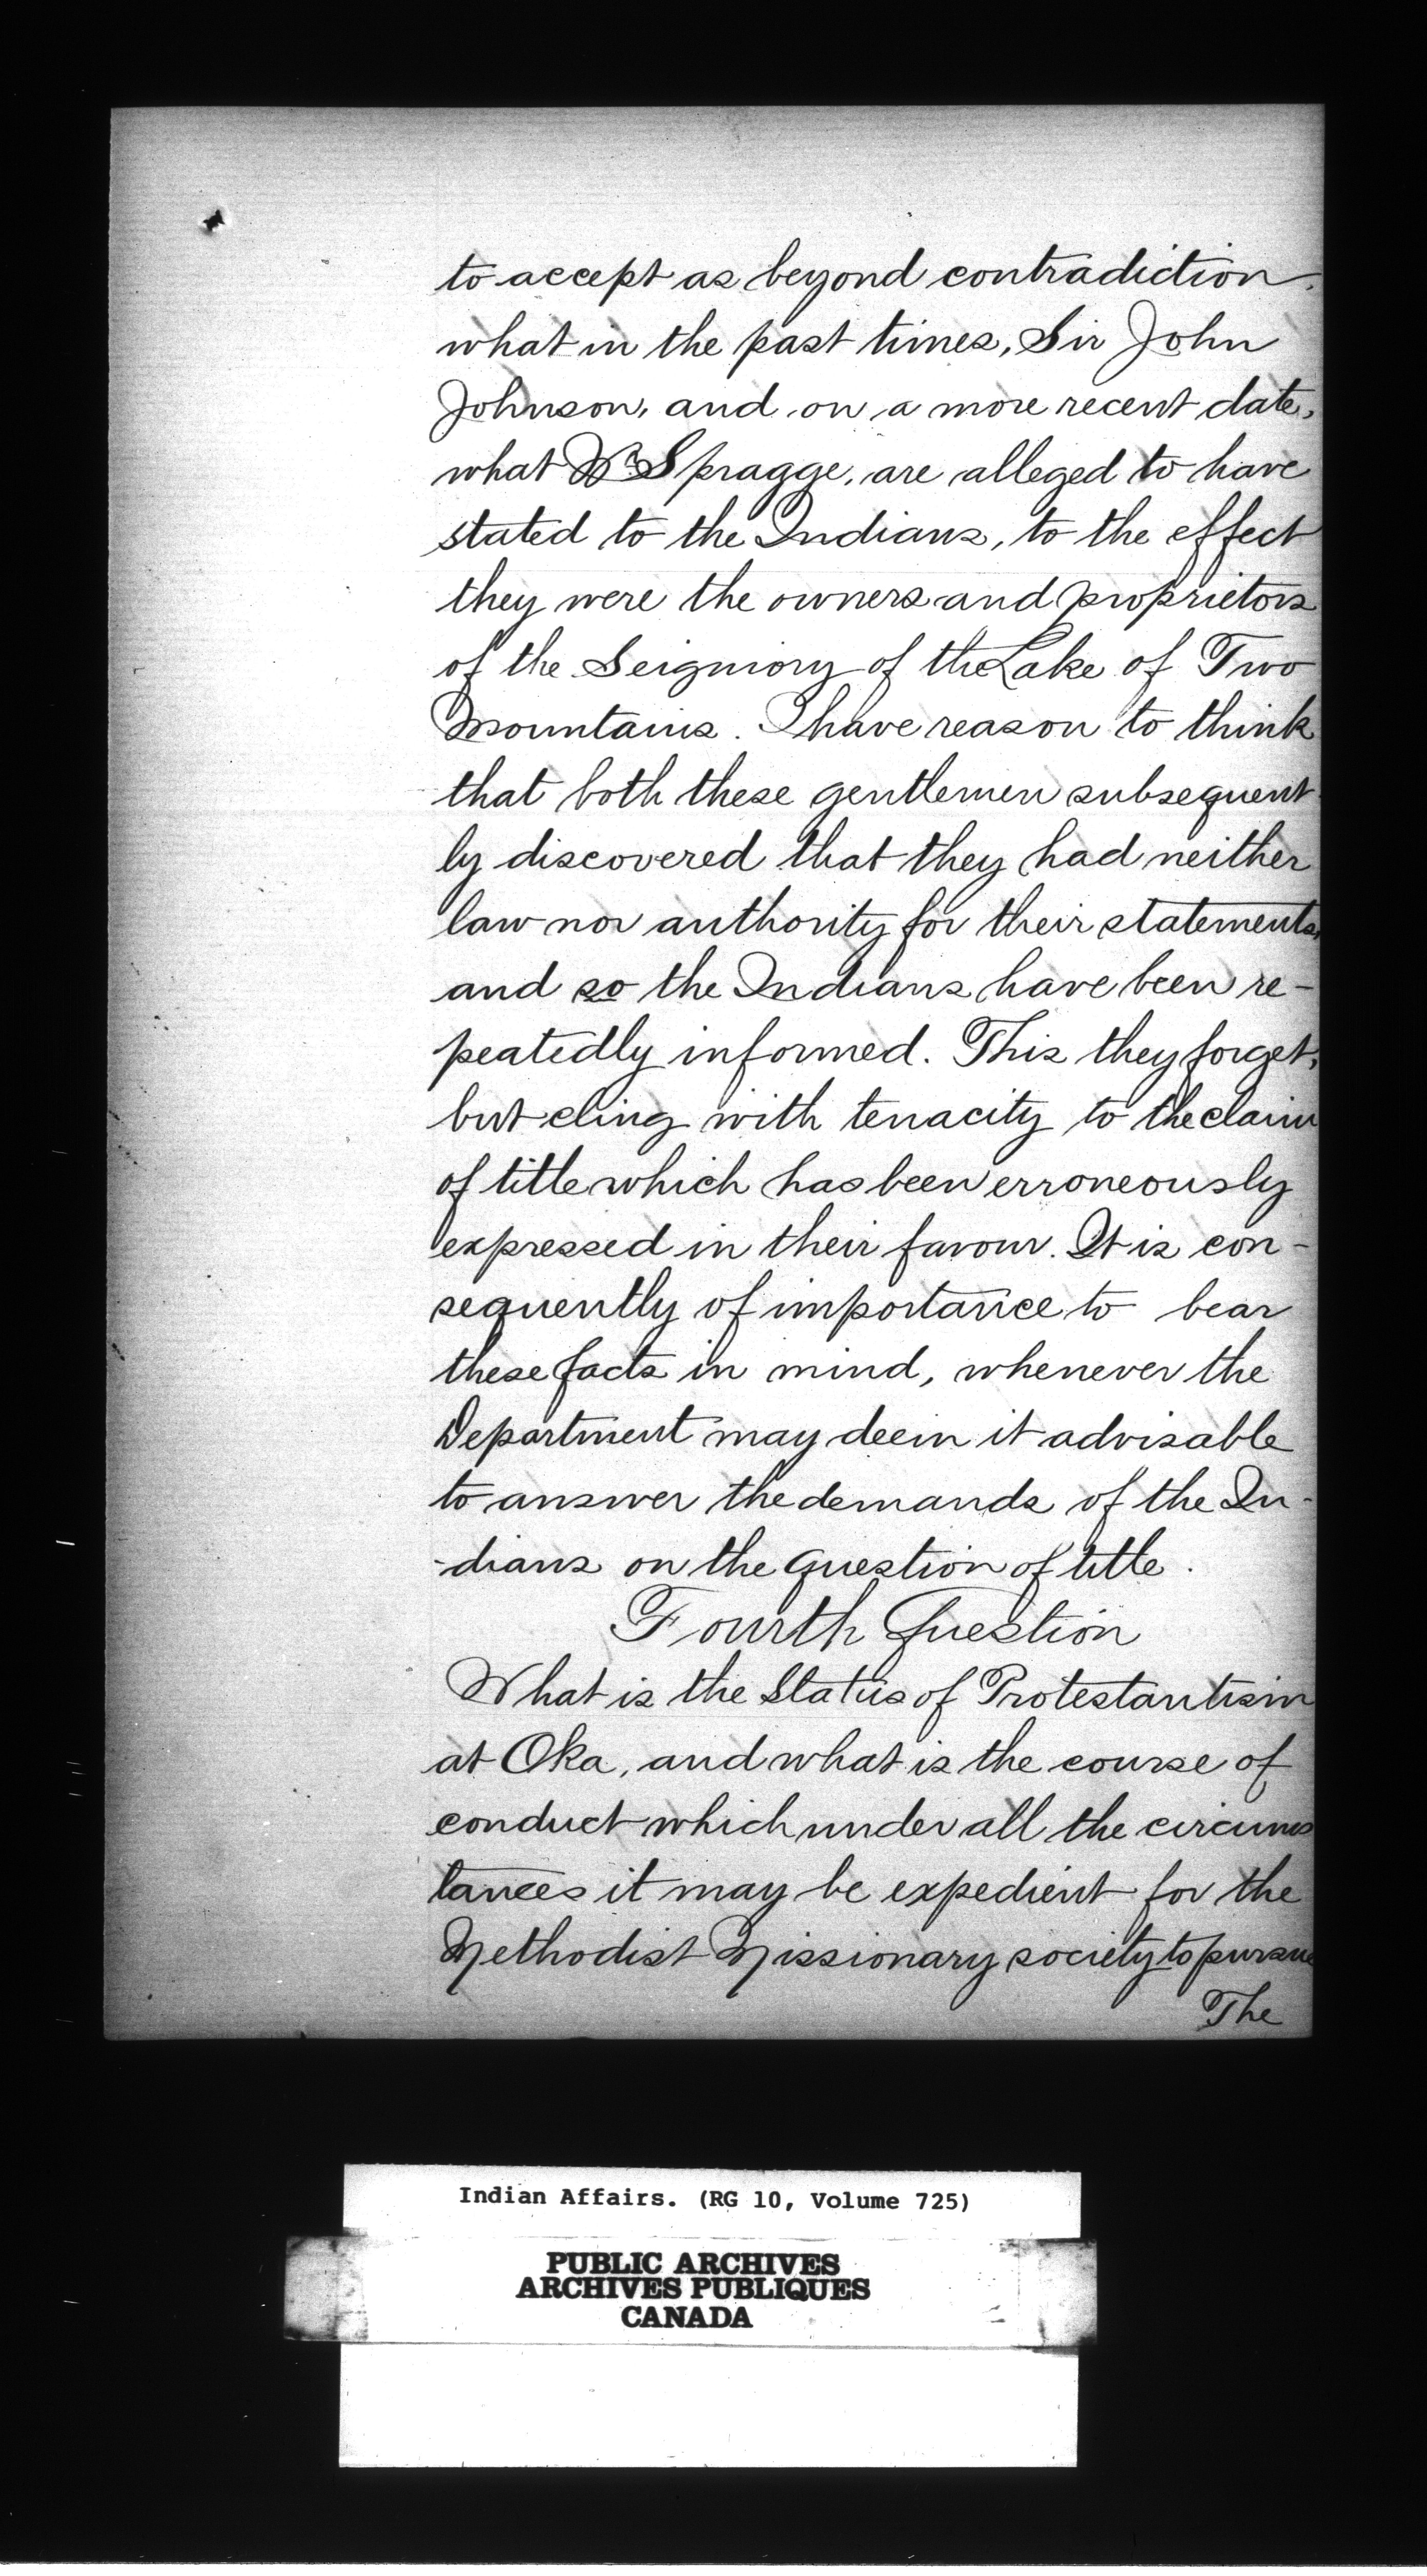 to accept as beyond contradiction.
what in the past times, Sir John
Johnson, and on a more recent date,
what Wm Spragge, are alleged to have
stated to the Indians, to the effect
they were the owners and proprietors
of the Seigniory of the Lake of Two
Mountains. I have reason to think
that both these gentlemen subsequent
ly discovered that they had neither
law nor authority for their statements,
and so the Indians have been re-
peatedly informed. This they forget,
but cling with tenacity to the claim
of title which has been erroneously
expressed in their favour. It is con-
sequently of importance to bear
these facts in mind, whenever the
Department may deem it advisable
to answer the demands of the In-
-dians on the question of title.
Fourth Question
What is the Status of Protestantism
at Oka, and what is the course of
conduct which under all the circums
tances it may be expedient for the
Methodist Missionary society to pursue
The
Indian Affairs. (RG 10, Volume 725)
PUBLIC ARCHIVES
ARCHIVES PUBLIQUES
CANADA